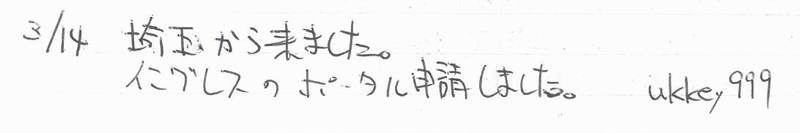 3/14 埼玉から来ました。
イングレスのポータル申請しました。 ukkey999